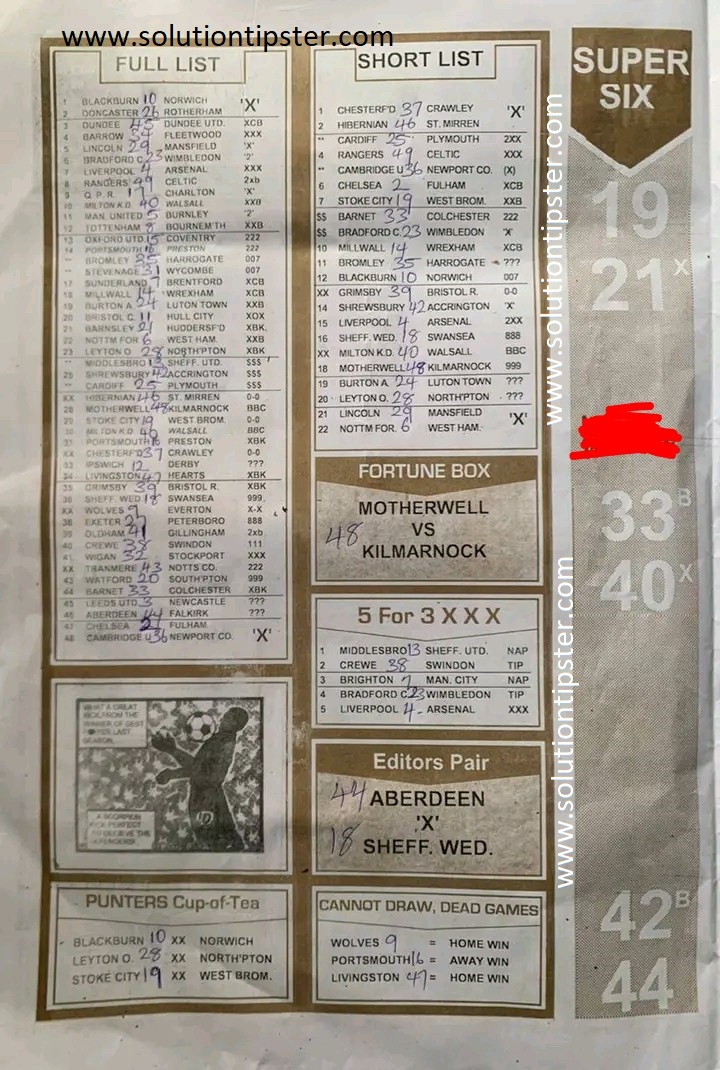 www.solutiontipster.com
FULL LIST
1 BLACKBURN 10 NORWICH 'X'
2 DONCASTER 26 ROTHERHAM
3 DUNDEE 45 DUNDEE UTD. XCB
4 BARROW FLEETWOOD XXX
5 LINCOLN 29 MANSFIELD 'X'
6 BRADFORD C. 23 WIMBLEDON '2'
7 LIVERPOOL 4 ARSENAL XXX
8 RANGERS 49 CELTIC 2xb
9 Q.P.R. 17 CHARLTON 'X'
10 MILTON K.D. 40 WALSALL XXB
11 MAN. UNITED 5 BURNLEY '2'
12 TOTTENHAM 8 BOURNEM'TH XXB
13 OXFORD UTD. 15 COVENTRY 222
14 PORTSMOUTH 16 PRESTON 222
** BROMLEY 35 HARROGATE 007
** STEVENAGE 31 WYCOMBE 007
17 SUNDERLAND BRENTFORD XCB
18 MILLWALL 14 WREXHAM XCB
19 BURTON A. 24 LUTON TOWN XXB
20 BRISTOL C. 11 HULL CITY XOX
21 BARNSLEY 21 HUDDERSF'D XBK
22 NOTTM FOR. 6 WEST HAM. XXB
23 LEYTON O. 28 NORTH'PTON XBK
** MIDDLESBRO 13 SHEFF. UTD. $$$
25 SHREWSBURY 42 ACCRINGTON $$$
** CARDIFF 25 PLYMOUTH $$$
XX HIBERNIAN 46 ST. MIRREN 0-0
28 MOTHERWELL 48 KILMARNOCK BBC
29 STOKE CITY 19 WEST BROM. 0-0
30 MILTON K.D. 40 WALSALL BBC
31 PORTSMOUTH 16 PRESTON XBK
XX CHESTERF'D 37 CRAWLEY 0-0
33 IPSWICH 12 DERBY ???
34 LIVINGSTON 47 HEARTS XBK
35 GRIMSBY 39 BRISTOL R. XBK
36 SHEFF. WED 18 SWANSEA 999.
XX WOLVES 9 EVERTON X-X
38 EXETER 27 PETERBORO 888
39 OLDHAM 41 GILLINGHAM 2xb
40 CREWE 38 SWINDON 111
41 WIGAN 32 STOCKPORT XXX
XX TRANMERE 43 NOTTS CO. 222
43 WATFORD 20 SOUTH'PTON 999
44 BARNET 33 COLCHESTER XBK
45 LEEDS UTD 3 NEWCASTLE ???
46 ABERDEEN 44 FALKIRK ???
47 CHELSEA 2 FULHAM
48 CAMBRIDGE U 36 NEWPORT CO. 'X'
SHORT LIST
1 CHESTERF'D 37 CRAWLEY 'X'
2 HIBERNIAN 46 ST. MIRREN
** CARDIFF 25 PLYMOUTH 2XX
4 RANGERS 49 CELTIC XXX
** CAMBRIDGE U 36 NEWPORT CO. (X)
6 CHELSEA 2 FULHAM XCB
7 STOKE CITY 19 WEST BROM. XXB
$$ BARNET 33 COLCHESTER 222
$$ BRADFORD C. 23 WIMBLEDON 'X'
10 MILLWALL 14 WREXHAM XCB
11 BROMLEY 35 HARROGATE ???
12 BLACKBURN 10 NORWICH 007
XX GRIMSBY 39 BRISTOL R. 0-0
14 SHREWSBURY 42 ACCRINGTON 'X'
15 LIVERPOOL 4 ARSENAL 2XX
16 SHEFF. WED. 18 SWANSEA 888
XX MILTON K.D. 40 WALSALL BBC
18 MOTHERWELL 48 KILMARNOCK 999
19 BURTON A. 24 LUTON TOWN ???
20 LEYTON O. 28 NORTH'PTON ???
21 LINCOLN 29 MANSFIELD 'X'
22 NOTTM FOR. 6 WEST HAM.
FORTUNE BOX
MOTHERWELL
48 VS
KILMARNOCK
5 For 3 X X X
1 MIDDLESBRO 13 SHEFF. UTD. NAP
2 CREWE 38 SWINDON TIP
3 BRIGHTON MAN. CITY NAP
4 BRADFORD C. 23 WIMBLEDON TIP
5 LIVERPOOL 4 ARSENAL XXX
Editors Pair
44 ABERDEEN
'X'
18 SHEFF. WED.
WHAT A GREAT
KICK FROM THE
WINNER OF BEST
LAST
SEASON.
A SCORPION
KICK PERFECT
TO DECEIVE THE
PUNTERS Cup-of-Tea
BLACKBURN 10 XX NORWICH
LEYTON O. 28 XX NORTH'PTON
STOKE CITY 19 XX WEST BROM.
CANNOT DRAW, DEAD GAMES
WOLVES 9 = HOME WIN
PORTSMOUTH 16 = AWAY WIN
LIVINGSTON 47 = HOME WIN
SUPER
SIX
19
21X
33B
40X
42B
44
www.solutiontipster.com
www.solutiontipster.com